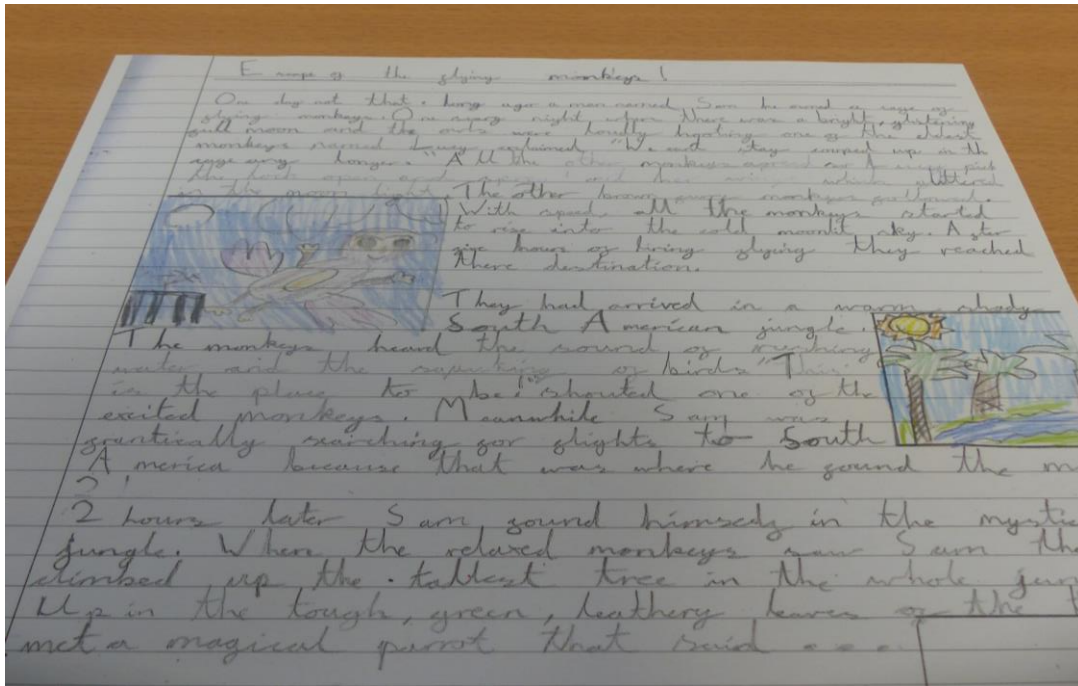 Escape of the flying monkeys!
One day not that long ago a man named Sam he owned a cage of
flying monkeys. One night when there was a bright, glistening
full moon and the owls were loudly hooting one of the oldest
monkeys named Lucy exclaimed "We not stay cooped up in th
cage any longer." All the other monkeys agreed so Lucy pick
the lock open and and her wings which
in the moon light. The other brown monkeys followed.
With speed all the monkeys started
to rise into the cold moonlit sky. After
five hours of tiring flying they reached
there destination.
They had arrived in a warm shady
South American jungle.
The monkeys heard the sound of rushing
water and the of birds "This
is the place to be!" shouted one of the
excited monkeys. Meanwhile Sam was
frantically searching for flights to South
America because that was where he found the m
2 hours later Sam found himself in the mystic
jungle. When the relaxed monkeys saw Sam the
climbed up the tallest tree in the whole jun
Up in the tough, green, leathery leaves of the t
met a magical parrot that said ....